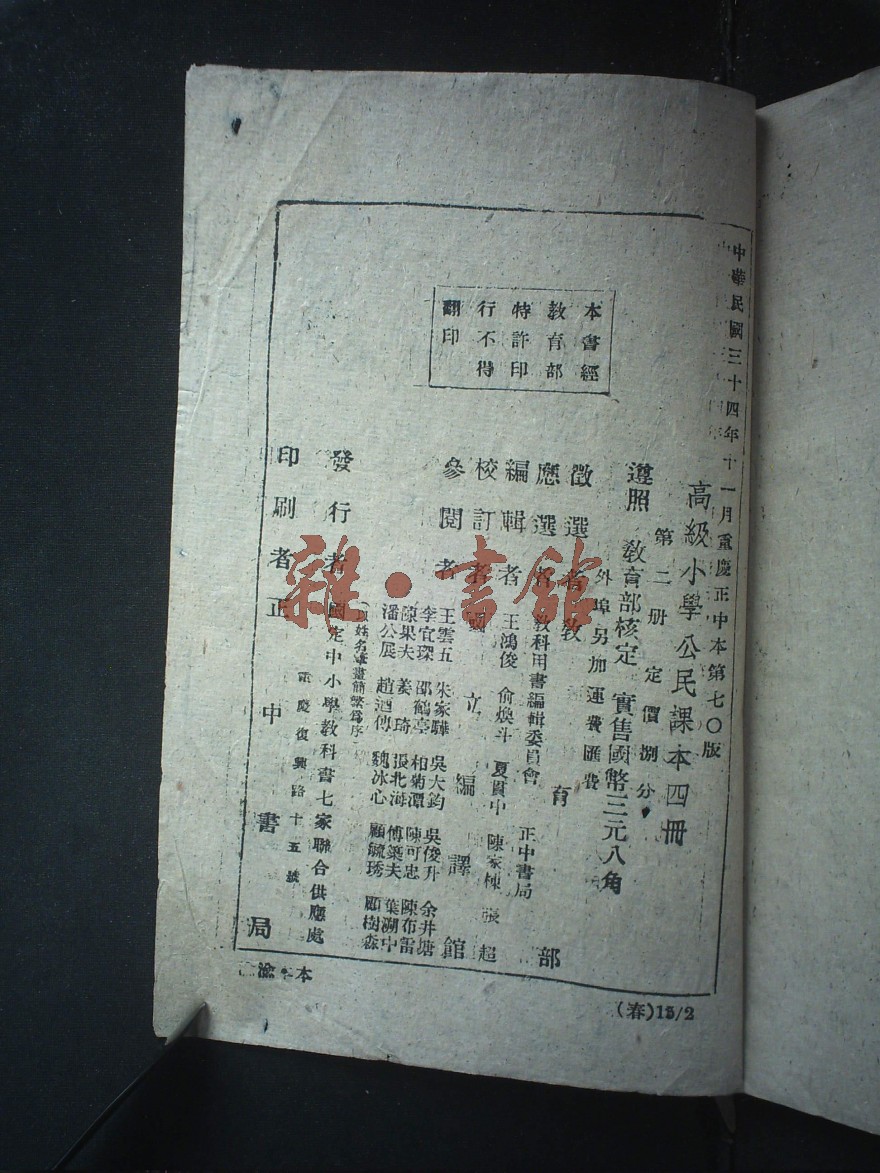 中華民國三十四年十一月重慶正中本第七〇版
高級小學公民課本四冊
第二册 定價捌分
遵照教育部核定 實售國幣三元八角
外埠另加運費匯費
徵選者教育部
應選者教科用書編輯委員會 正中書局
編輯者王鴻俊 俞煥斗 夏貫中 陳家棟 張超
校訂者國立編譯館
參閱者
王雲五 朱家驊 吳大鈞 吳俊升 余井塘
李宜琛 邵鶴亭 和菊潭 陳可忠 陳布雷
陳果夫 姜琦 張北海 傅築夫 葉溯中
潘公展 趙迺傳 魏冰心 顧毓琇 顧樹森
(以姓名筆畫簡繁爲序)
發行者國定中小學教科書七家聯合供應處
重慶復興路十五號
印刷者正中書局
本書經
教育部
特許印
行不得
翻印
渝本
(春)15/2
雜·書館